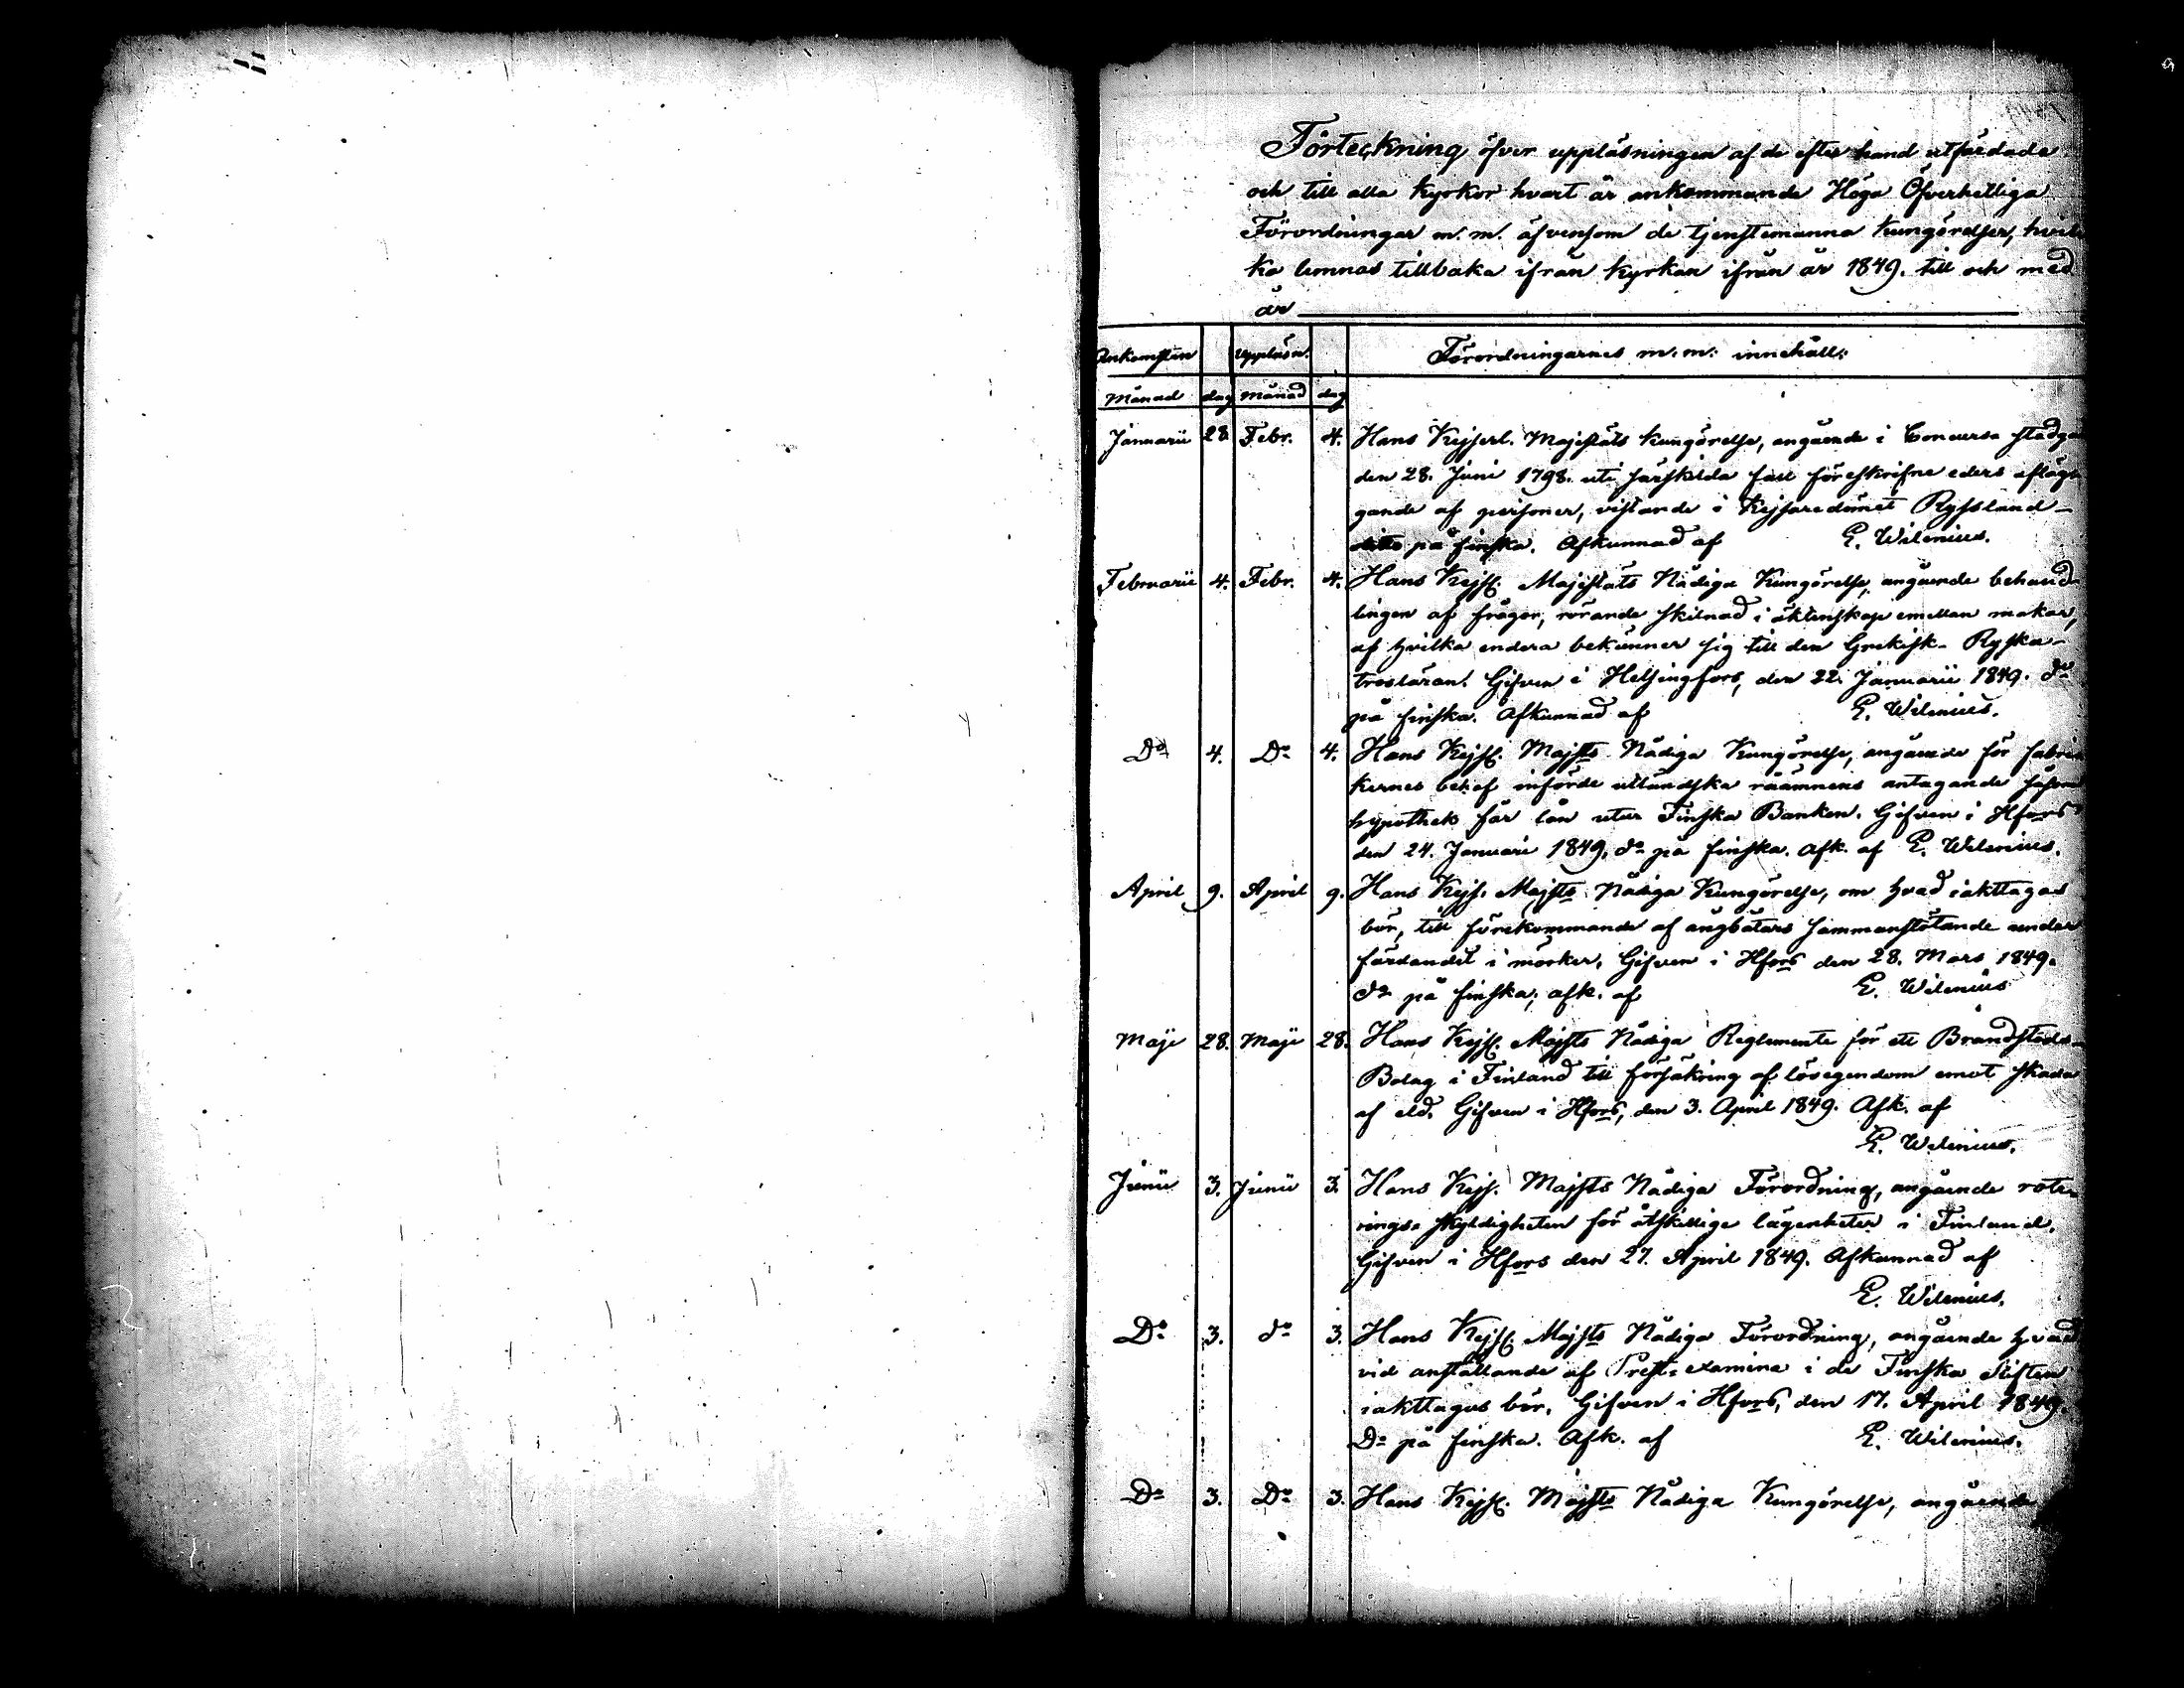 Förteckning öfver uppläsningen af de efter hand utfärdade
och till alla kyrkor hvart år ankommande Höga Öfverhetliga
Förordningar m. m. äfvensom de tjenstemanna kungörelser, hvil
ka lemnas tillbaka ifrån kyrkan ifrån år 1849. till och med
år
Ankomsten Uppläsn. Förordningarnes m. m. innehåll:
Månad dag månad dag
Januarii 28. Febr. 4. Hans Kejserl. Majestäts kungörelse, angående i Concurs stadgan
den 28. Juni 1798. uti särskilda fall föreskrifne eders afläg
gande af personer, vistande i Kejsaredömet Ryssland
ditto på finska. Afkunnad af E. Wilenius.
Februarii 4. Febr. 4. Hans Kejs. Majestäts Nådiga Kungörelse, angående behand
lingen af frågor, rörande skilnad i äktenskap emellan makar,
af hvilka endera bekänner sig till den Grekisk-Ryska-
trosläran. Gifven i Helsingfors, den 22. Januarii 1849. do
på finska. Afkunnad af E. Wilenius.
Do 4. Do 4. Hans Kejs. Majsts Nådiga Kungörelse, angående för fabri
kernes behof införde utländska råämnens antagande såsom
hypothek för lån utur Finska Banken. Gifven i Hfors
den 24. Januari 1849, do på finska. Afk. af E. Wilenius.
April 9. April 9. Hans Kejs. Majsts Nådiga Kungörelse, om hvad iakttagas
bör, till förekommande af ångbåtars sammanstötande under
färdandet i mörker, Gifven i Hfors den 28. Mars 1849.
do på finska, afk. af E. Wilenius
Maji 28. Maji 28. Hans Kejs. Majsts Nådiga Reglemente för ett Brandstods-
Bolag i Finland till försäkring af lösegendom emot skada
af eld. Gifven i Hfors, den 3. April 1849. Afk. af
E. Wilenius.
Junii 3. Junii 3. Hans Kejs. Majsts Nådiga Förordning, angående rote-
rings-skyldigheten för åtskillige lägenheter i Finland.
Gifven i Hfors den 27. April 1849. Afkunnad af
E. Wilenius.
Do 3. do 3. Hans Kejs. Majsts Nådiga Förordning, angående hvad
vid anställande af Prest-examina i de Finska Stiften
iakttagas bör. Gifven i Hfors, den 17. April 1849.
Do på finska. Afk. af E. Wilenius.
Do 3. Do 3. Hans Kejs. Majsts Nådiga Kungörelse, angående